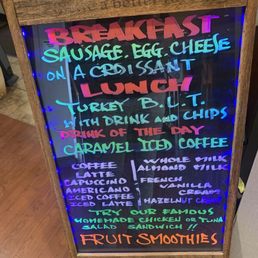 BREAKFAST
SAUSAGE, EGG, CHEESE
ON A CROISSANT
LUNCH
TURKEY B.L.T.
WITH DRINK AND CHIPS
DRINK OF THE DAY
CARAMEL ICED COFFEE
COFFEE
LATTE
CAPUCCINO
AMERICANO
ICED COFFEE
ICED LATTE
WHOLE MILK
ALMOND MILK
FRENCH
VANILLA
CREAM
HAZELNUT
TRY OUR FAMOUS
HOMEMADE CHICKEN OR TUNA
SALAD SANDWICH!!
FRUIT SMOOTHIES